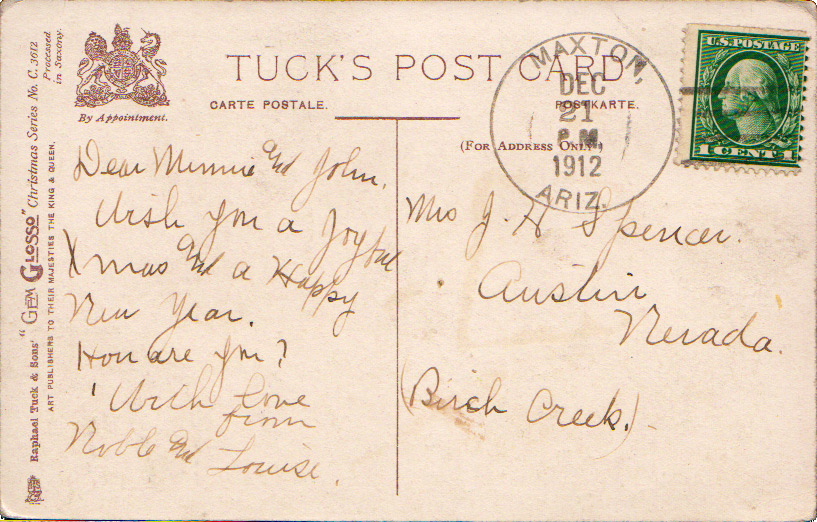 TUCK'S POST CARD
CARTE POSTALE.
POSTKARTE.
(FOR ADDRESS ONLY.)
By Appointment.
Raphael Tuck & Sons' "GEM GLOSSO" Christmas Series No. C. 3612
ART PUBLISHERS TO THEIR MAJESTIES THE KING & QUEEN.
Processed
in Saxony.
MAXTON,
DEC
21
P.M.
1912
ARIZ.
U.S. POSTAGE
1 CENT 1
Dear Minnie and John.
Wish you a Joyful
Xmas and a Happy
New Year.
How are you?
With Love
from
Noble and Louise.
Mrs J. H Spencer.
Austin
Nevada.
(Birch Creek.)